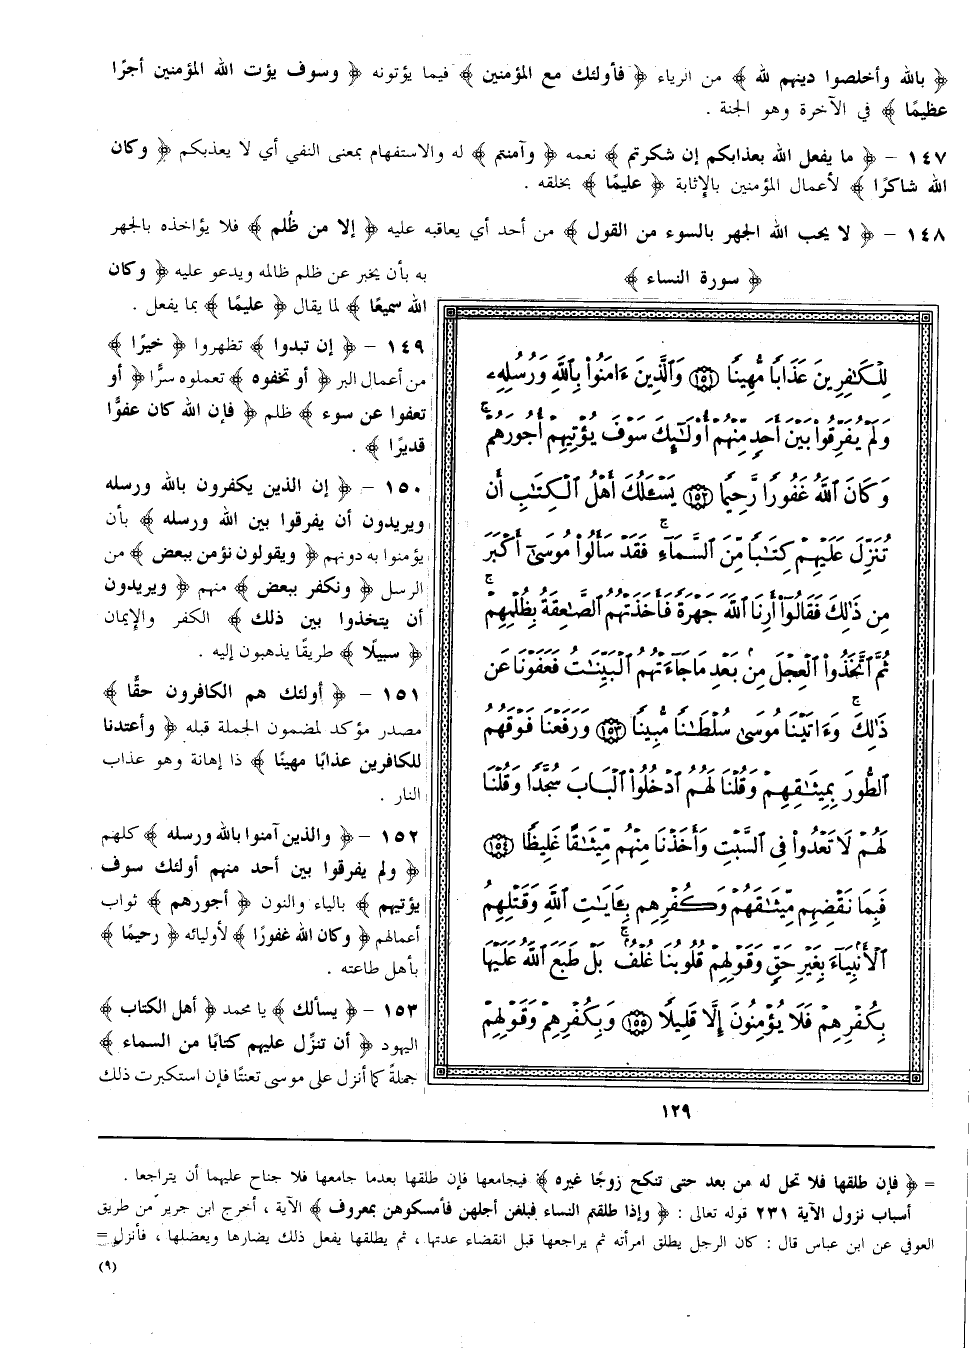 ﴿ بالله وأخلصوا دينهم لله ﴾ من الرياء ﴿ فأولئك مع المؤمنين ﴾ فيما يؤتونه ﴿ وسوف يؤت الله المؤمنين أجرًا
عظيمًا ﴾ في الآخرة وهو الجنة .
١٤٧ – ﴿ ما يفعل الله بعذابكم إن شكرتم ﴾ نعمه ﴿ وآمنتم ﴾ له والاستفهام بمعنى النفي أي لا يعذبكم ﴿ وكان
الله شاكرًا ﴾ لأعمال المؤمنين بالإثابة ﴿ عليمًا ﴾ بخلقه .
١٤٨ – ﴿ لا يحب الله الجهر بالسوء من القول ﴾ من أحد أي يعاقبه عليه ﴿ إلا من ظُلم ﴾ فلا يؤاخذه بالجهر
به بأن يخبر عن ظلم ظالمه ويدعو عليه ﴿ وكان
الله سميعًا ﴾ لما يقال ﴿ عليمًا ﴾ بما يفعل .
١٤٩ – ﴿ إن تبدوا ﴾ تظهروا ﴿ خيرًا ﴾
من أعمال البر ﴿ أو تخفوه ﴾ تعملوه سرًّا ﴿ أو
تعفوا عن سوء ﴾ ظلم ﴿ فإن الله كان عفوًّا
قديرًا ﴾ .
١٥٠ – ﴿ إن الذين يكفرون بالله ورسله
ويريدون أن يفرقوا بين الله ورسله ﴾ بأن
يؤمنوا به دونهم ﴿ ويقولون نؤمن ببعض ﴾ من
الرسل ﴿ ونكفر ببعض ﴾ منهم ﴿ ويريدون
أن يتخذوا بين ذلك ﴾ الكفر والإيمان
﴿ سبيلًا ﴾ طريقًا يذهبون إليه .
١٥١ – ﴿ أولئك هم الكافرون حقًّا ﴾
مصدر مؤكد لمضمون الجملة قبله ﴿ وأعتدنا
للكافرين عذابًا مهينًا ﴾ ذا إهانة وهو عذاب
النار .
١٥٢ – ﴿ والذين آمنوا بالله ورسله ﴾ كلهم
﴿ ولم يفرقوا بين أحد منهم أولئك سوف
يؤتيهم ﴾ بالياء والنون ﴿ أجورهم ﴾ ثواب
أعمالهم ﴿ وكان الله غفورًا ﴾ لأوليائه ﴿ رحيمًا ﴾
بأهل طاعته .
١٥٣ – ﴿ يسألك ﴾ يا محمد ﴿ أهل الكتاب ﴾
اليهود ﴿ أن تنزّل عليهم كتابًا من السماء ﴾
جملةً كما أنزل على موسى تعنتًا فإن استكبرت ذلك
﴿ سورة النساء ﴾
لِلْكَٰفِرِينَ عَذَابًا مُّهِينًا ﴿١٥١﴾ وَٱلَّذِينَ ءَامَنُوا۟ بِٱللَّهِ وَرُسُلِهِۦ
وَلَمْ يُفَرِّقُوا۟ بَيْنَ أَحَدٍ مِّنْهُمْ أُو۟لَٰٓئِكَ سَوْفَ يُؤْتِيهِمْ أُجُورَهُمْ ۚ
وَكَانَ ٱللَّهُ غَفُورًا رَّحِيمًا ﴿١٥٢﴾ يَسْـَٔلُكَ أَهْلُ ٱلْكِتَٰبِ أَن
تُنَزِّلَ عَلَيْهِمْ كِتَٰبًا مِّنَ ٱلسَّمَآءِ ۚ فَقَدْ سَأَلُوا۟ مُوسَىٰٓ أَكْبَرَ
مِن ذَٰلِكَ فَقَالُوٓا۟ أَرِنَا ٱللَّهَ جَهْرَةً فَأَخَذَتْهُمُ ٱلصَّٰعِقَةُ بِظُلْمِهِمْ ۚ
ثُمَّ ٱتَّخَذُوا۟ ٱلْعِجْلَ مِنۢ بَعْدِ مَا جَآءَتْهُمُ ٱلْبَيِّنَٰتُ فَعَفَوْنَا عَن
ذَٰلِكَ ۚ وَءَاتَيْنَا مُوسَىٰ سُلْطَٰنًا مُّبِينًا ﴿١٥٣﴾ وَرَفَعْنَا فَوْقَهُمُ
ٱلطُّورَ بِمِيثَٰقِهِمْ وَقُلْنَا لَهُمُ ٱدْخُلُوا۟ ٱلْبَابَ سُجَّدًا وَقُلْنَا
لَهُمْ لَا تَعْدُوا۟ فِى ٱلسَّبْتِ وَأَخَذْنَا مِنْهُم مِّيثَٰقًا غَلِيظًا ﴿١٥٤﴾
فَبِمَا نَقْضِهِم مِّيثَٰقَهُمْ وَكُفْرِهِم بِـَٔايَٰتِ ٱللَّهِ وَقَتْلِهِمُ
ٱلْأَنۢبِيَآءَ بِغَيْرِ حَقٍّ وَقَوْلِهِمْ قُلُوبُنَا غُلْفٌۢ ۚ بَلْ طَبَعَ ٱللَّهُ عَلَيْهَا
بِكُفْرِهِمْ فَلَا يُؤْمِنُونَ إِلَّا قَلِيلًا ﴿١٥٥﴾ وَبِكُفْرِهِمْ وَقَوْلِهِمْ
١٢٩
= ﴿ فإن طلقها فلا تحل له من بعد حتى تنكح زوجًا غيره ﴾: فيجامعها فإن طلقها بعدما جامعها فلا جناح عليهما أن يتراجعا .
أسباب نزول الآية ٢٣١ قوله تعالى : ﴿ وإذا طلقتم النساء فبلغن أجلهن فأمسكوهن بمعروف ﴾ الآية ، أخرج ابن جرير من طريق
العوفي عن ابن عباس قال : كان الرجل يطلق امرأته ثم يراجعها قبل انقضاء عدتها ، ثم يطلقها يفعل ذلك يضارها ويعضلها ، فأنزل =
(٩)